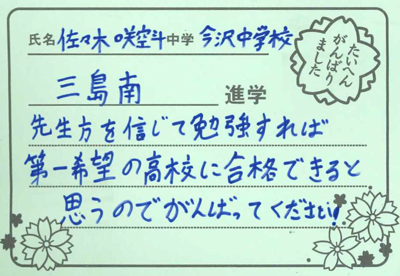 氏名 佐々木 咲空斗 中学 今沢中学校
たいへん
がんばり
ました
三島南 進学
先生方を信じて勉強すれば
第一希望の高校に合格できると
思うのでがんばってください!